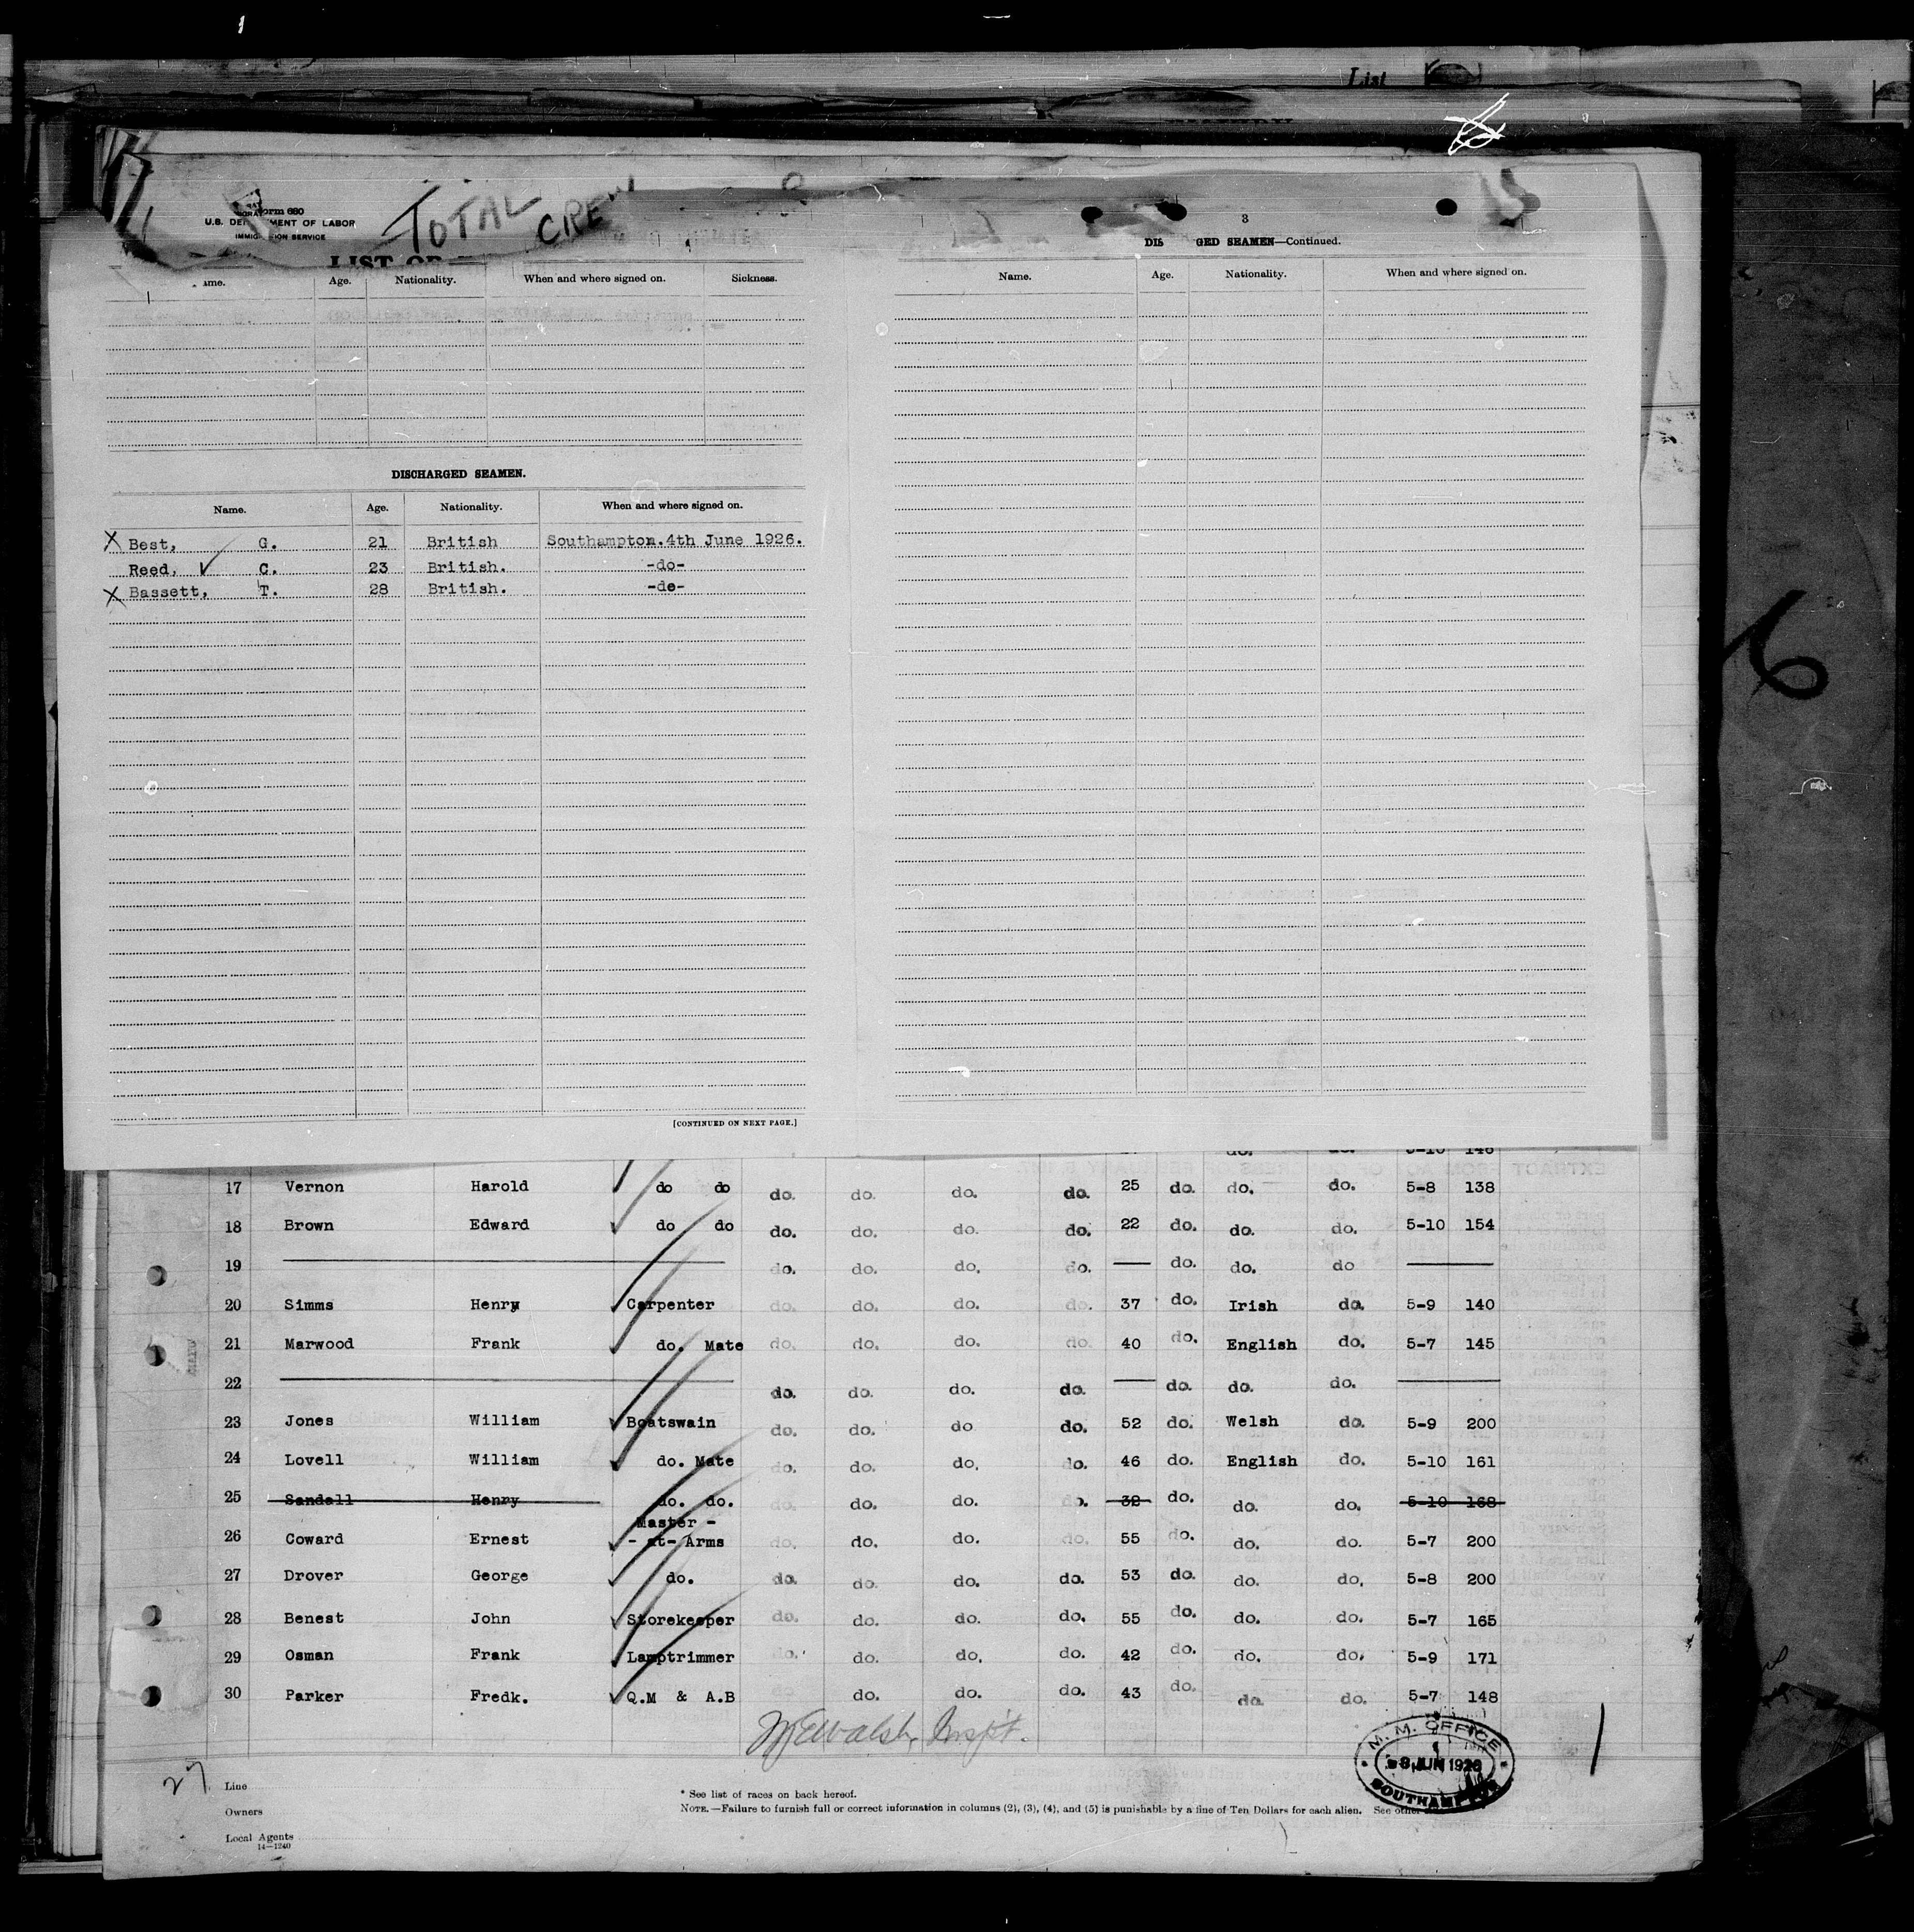 List
TOTAL CREW
Form 680
U.S. DEPARTMENT OF LABOR
IMMIGRATION SERVICE
LIST OF
ame. Age. Nationality. When and where signed on. Sickness.
DISCHARGED SEAMEN.
Name. Age. Nationality. When and where signed on.
X Best, G. 21 British Southampton.4th June 1926.
Reed, ✓ C. 23 British. -do-
X Bassett, T. 28 British. -de-
[CONTINUED ON NEXT PAGE.]
3
DIS GED SEAMEN—Continued.
Name. Age. Nationality. When and where signed on.
6
do. do. 5-10 146
17 Vernon Harold do do do. do. do. do. 25 do. do. do. 5-8 138
18 Brown Edward do do do. do. do. do. 22 do. do. do. 5-10 154
19 do. do. do. do. — do. do. do
20 Simms Henry Carpenter do. do. do. do. 37 do. Irish do. 5-9 140
21 Marwood Frank do. Mate do. do. do. do. 40 do. English do. 5-7 145
22 do. do. do. do. — do. do. do.
23 Jones William Boatswain do. do. do do. 52 do. Welsh do. 5-9 200
24 Lovell William do. Mate do. do. do. do. 46 do. English do. 5-10 161
25 Sandell Henry do. do. do. do. do. do. 32 do. do. do. 5-10 168
Master -
26 Coward Ernest - at- Arms do. do. do. do. 55 do. do. do. 5-7 200
27 Drover George do. do. do. do. do. 53 do. do. do. 5-8 200
28 Benest John Storekeeper do. do. do. do. 55 do. do. do. 5-7 165
29 Osman Frank Lamptrimmer do. do. do. do. 42 do. do. do. 5-9 171
30 Parker Fredk. Q.M & A.B do. do. do. 43 do. do. do. 5-7 148
Walsh Inspt.
M. M. OFFICE
8 JUN 1926
SOUTHAMPTON
27
Line
Owners
Local Agents
14—1240
* See list of races on back hereof.
NOTE.—Failure to furnish full or correct information in columns (2), (3), (4), and (5) is punishable by a fine of Ten Dollars for each alien. See other